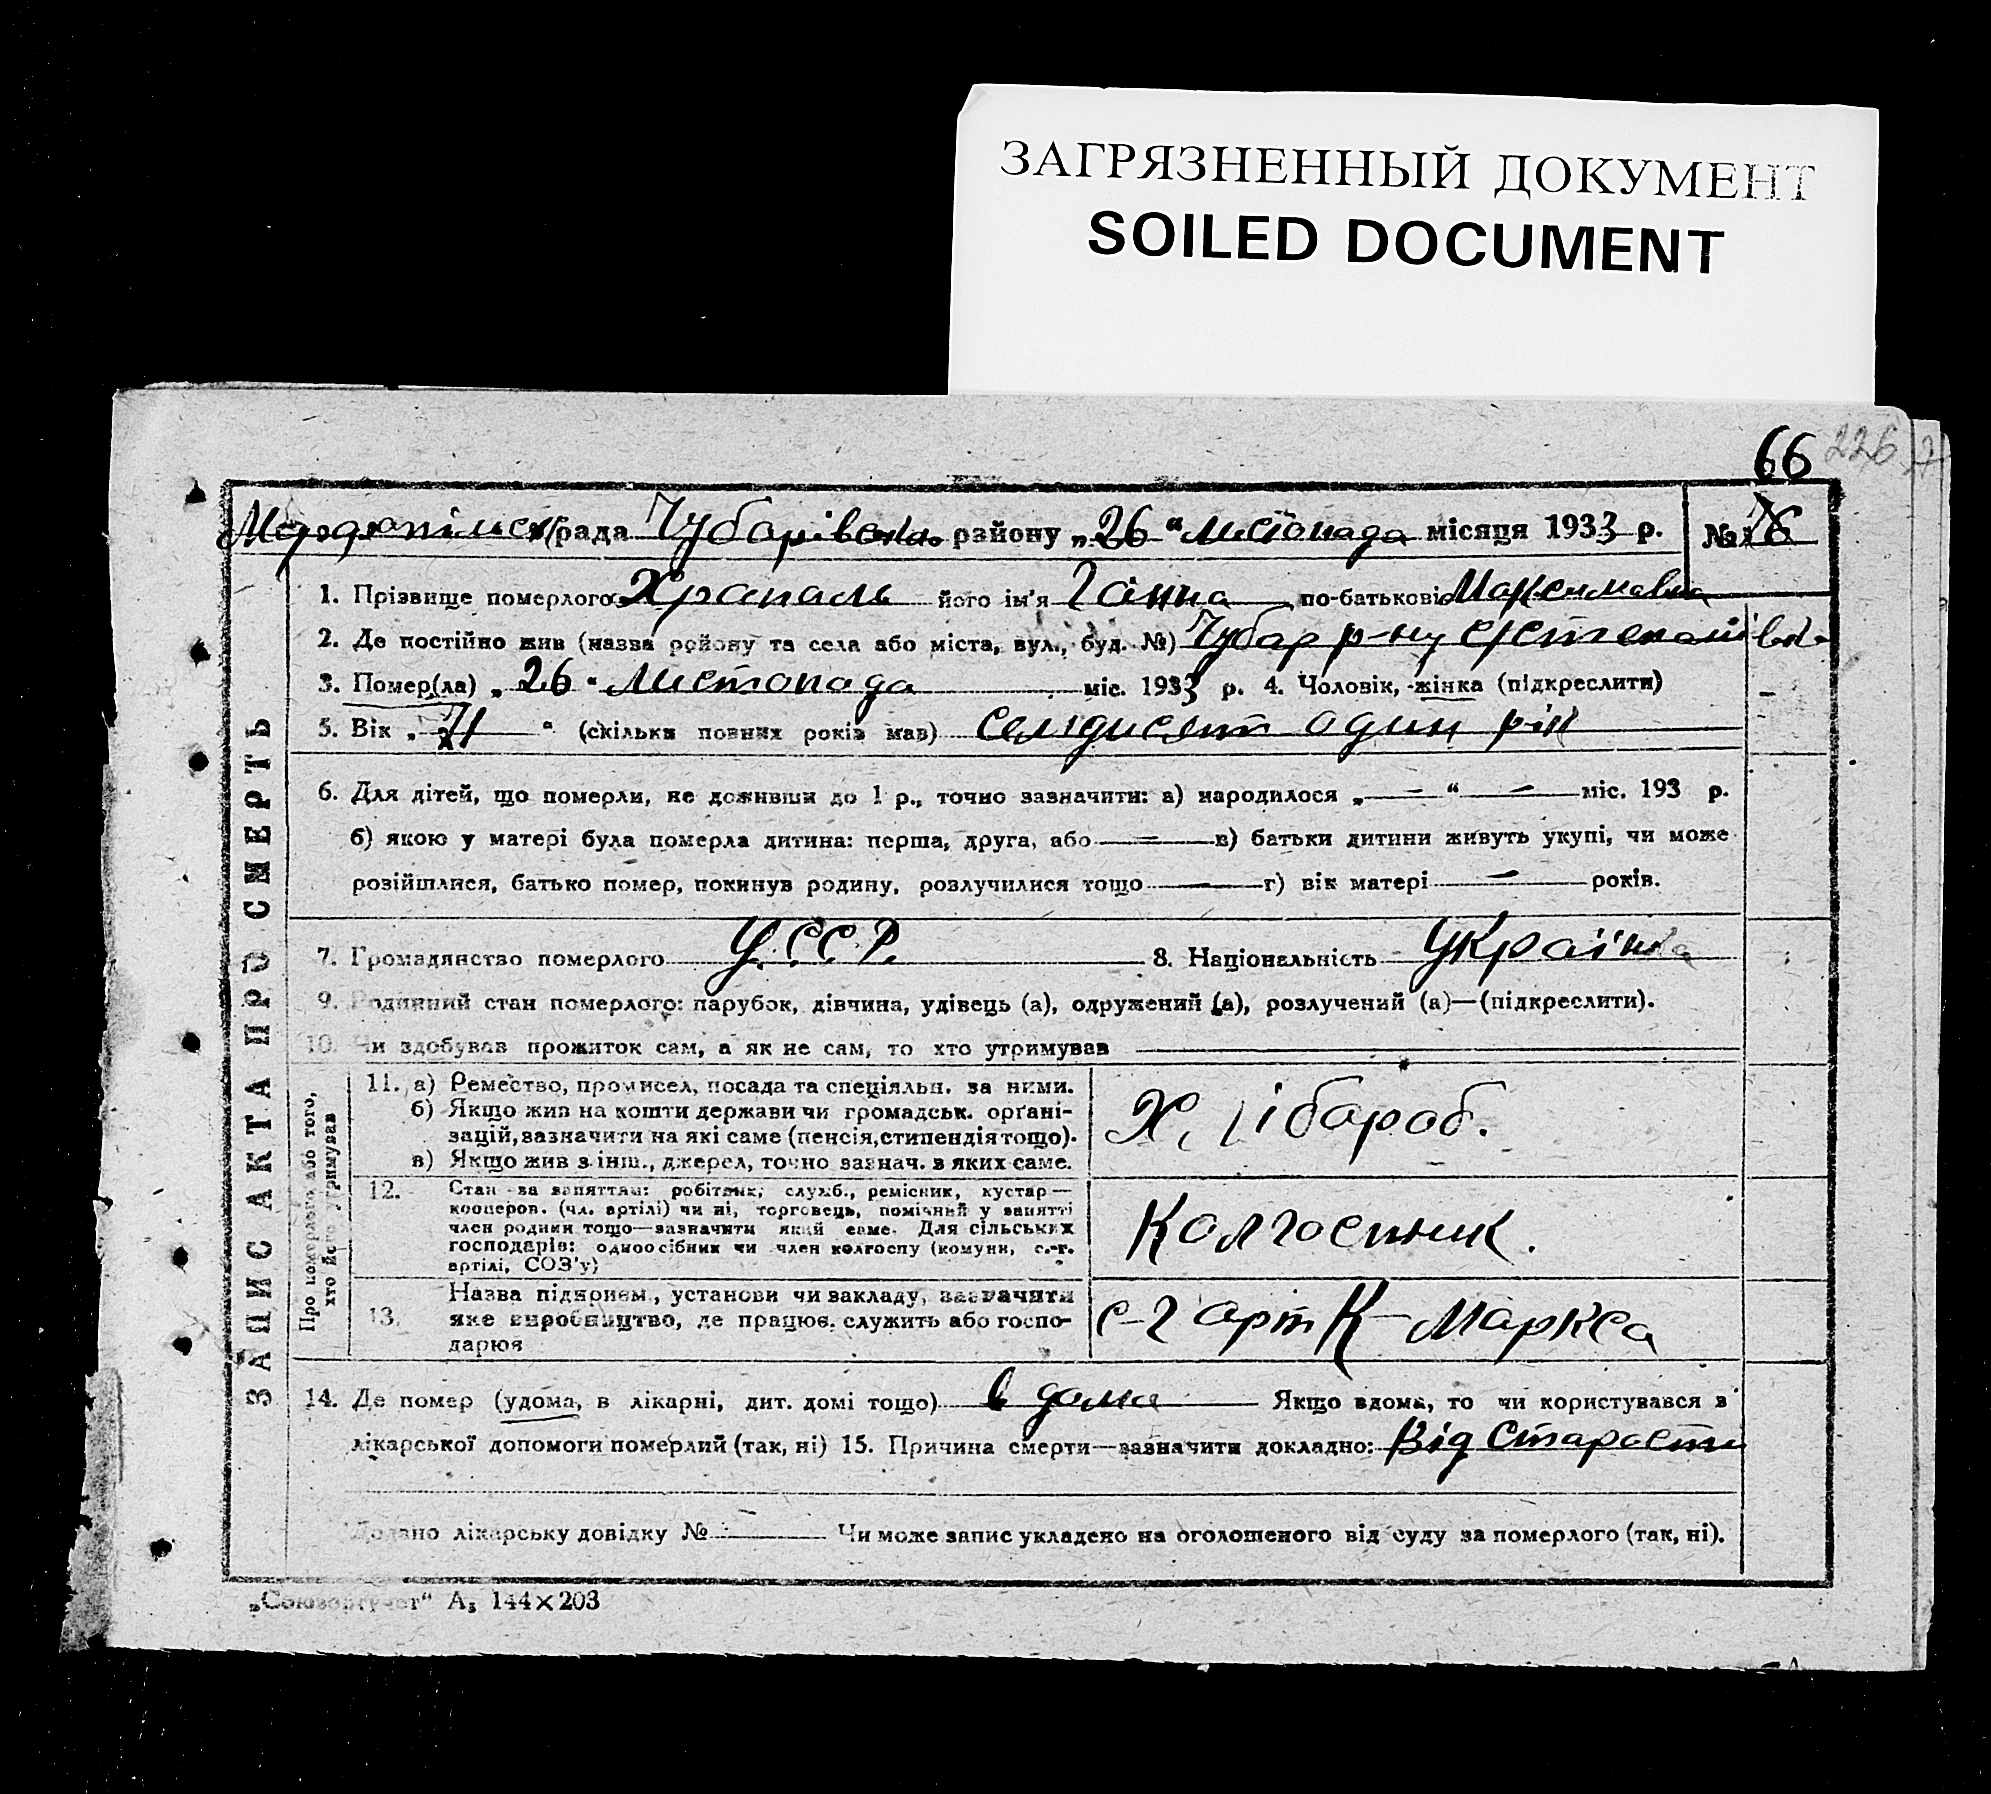 ЗАГРЯЗНЕННЫЙ ДОКУМЕНТ
SOILED DOCUMENT
66 226
рада Чубарівсько району „26“ листопада місяця 1933 р. №
1. Прізвище померлого Храпаль його ім'я Ганна по-батькові Максимовна
2. Де постійно жив (назва району та села або міста, вул., буд. №) Чубар р-ну
3. Помер(ла) „26“ листопада міс. 1933 р. 4. Чоловік, жінка (підкреслити)
5. Вік „71“ (скільки повних років мав) семдисят один рік
6. Для дітей, що померли, не доживши до 1 р., точно зазначити: а) народилося „—“ — міс. 193 р.
б) якою у матері була померла дитина: перша, друга, або — в) батьки дитини живуть укупі, чи може
розійшлися, батько помер, покинув родину, розлучилися тощо — г) вік матері — років.
7. Громадянство померлого У.С.С.Р. 8. Національність Українка
9. Родинний стан померлого: парубок, дівчина, удівець (а), одружений (а), розлучений (а)—(підкреслити).
10. Чи здобував прожиток сам, а як не сам, то хто утримував —
ЗАПИС АКТА ПРО СМЕРТЬ
Про померлого або того,
хто його утримував
11. а) Ремество, промисел, посада та спеціяльн. за ними.
б) Якщо жив на кошти держави чи громадськ. орґані-
зацій, зазначити на які саме (пенсія, стипендія тощо).
в) Якщо жив з інш., джерел, точно зазнач. з яких саме.
Х, лібароб.
12. Стан за заняттям: робітник, служб., ремісник, кустар—
кооперов. (чл. артілі) чи ні, торговець, помічний у занятті
член родини тощо—зазначити який саме. Для сільських
господарів: одноосібник чи член колгоспу (комуни, с.-г.
артілі, СОЗ'у)
Колгоспник.
13. Назва підприєм., установи чи закладу, зазначити
яке виробництво, де працює, служить або госпо-
дарює
с-г арт К-Маркса
14. Де помер (удома, в лікарні, дит. домі тощо) в дома Якщо вдома, то чи користувався в
лікарської допомоги померлий (так, ні) 15. Причина смерти—зазначити докладно: Від старости
Додано лікарську довідку № — Чи може запис укладено на оголошеного від суду за померлого (так, ні).
„Союзоргучот“ А₅ 144×203